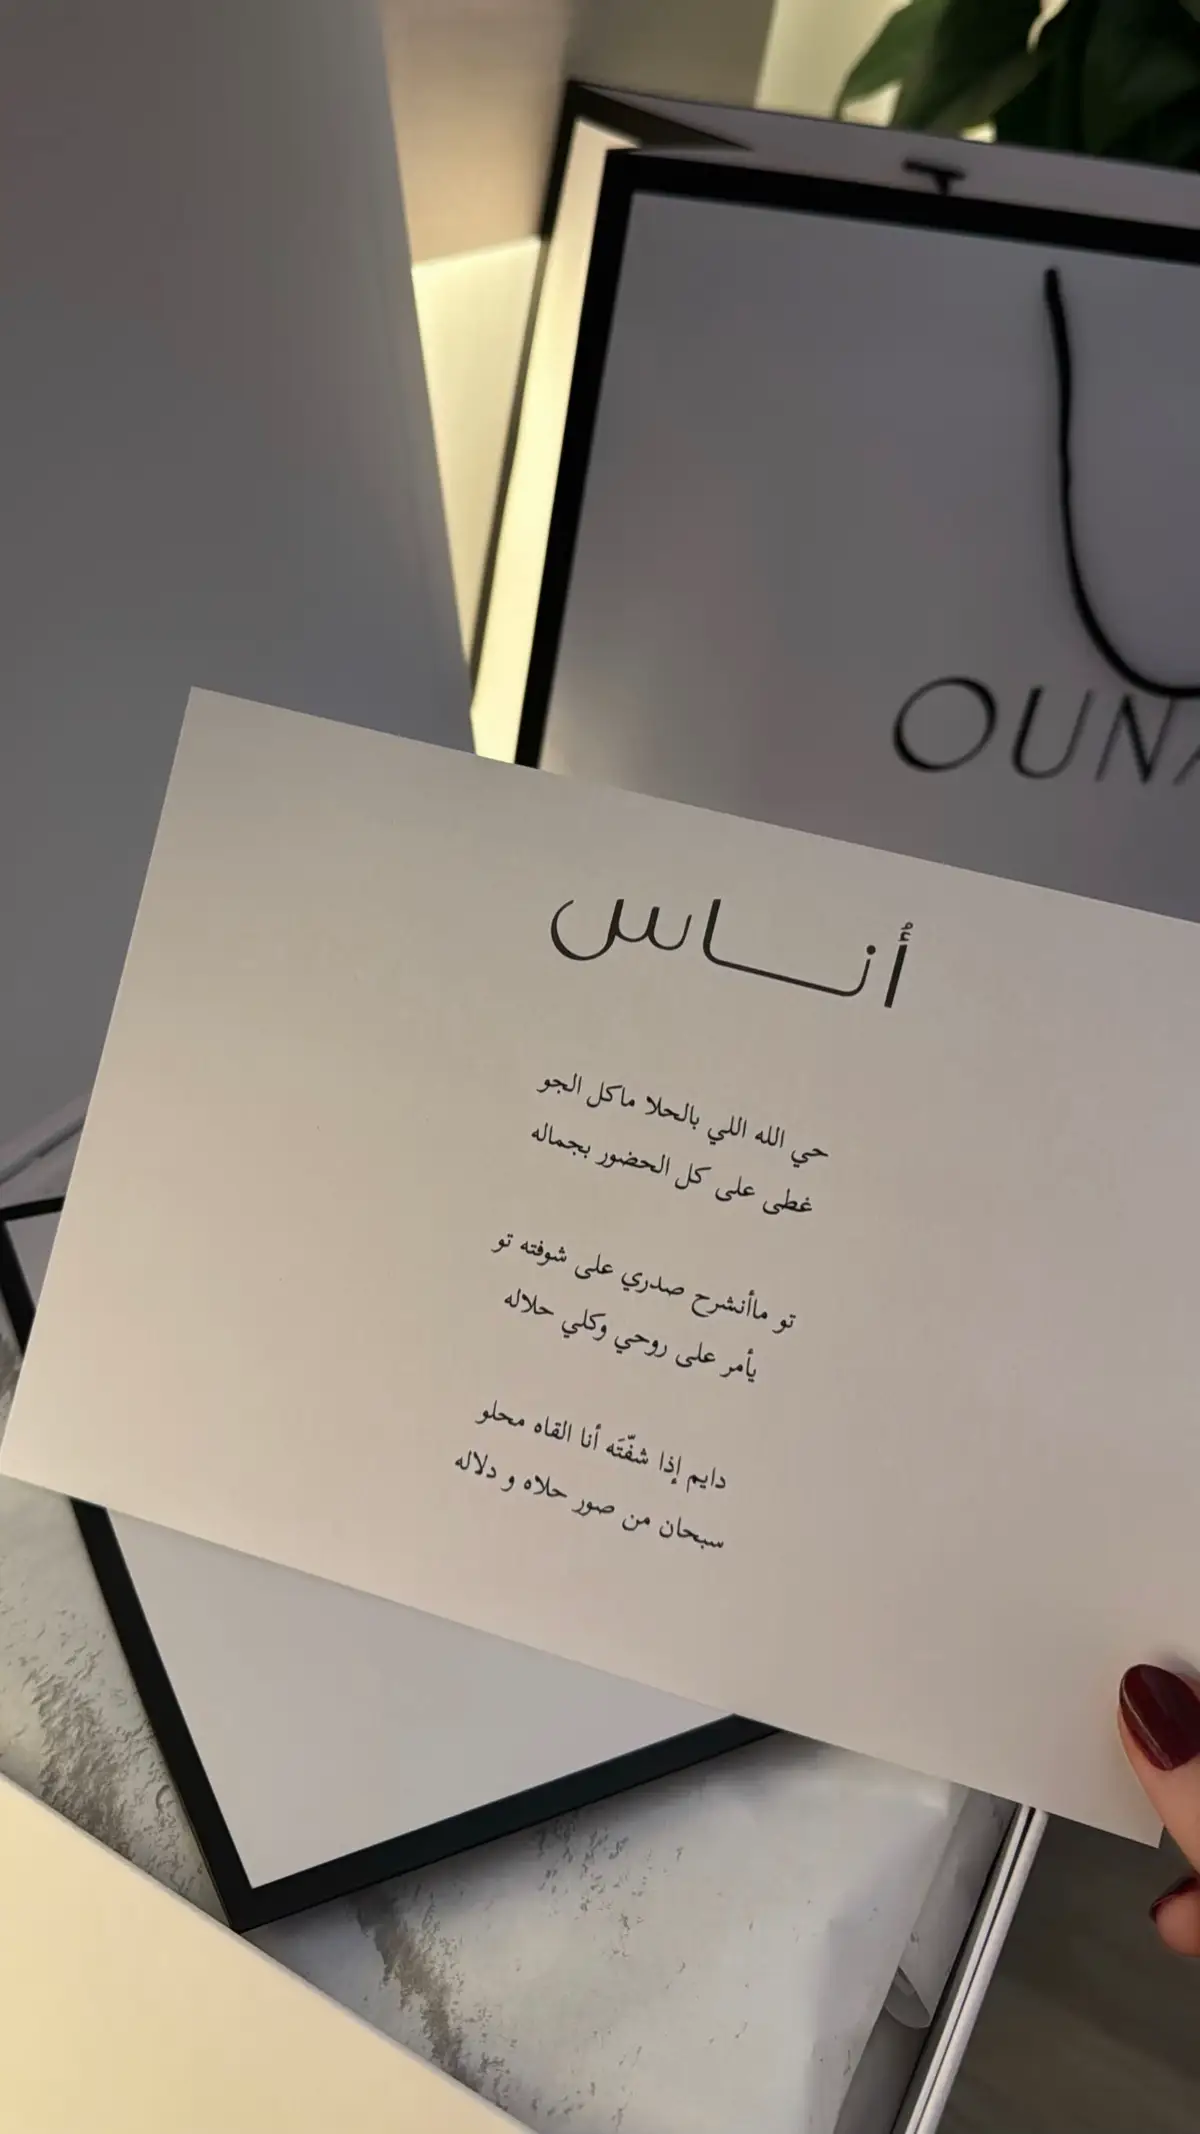 OUNA
أناس
حي الله اللي بالحلا ماكل الجو
غطى على كل الحضور بجماله
تو ماأنشرح صدري على شوفته تو
يأمر على روحي وكلي حلاله
دايم إذا شفّتَه أنا القاه محلو
سبحان من صور حلاه و دلاله